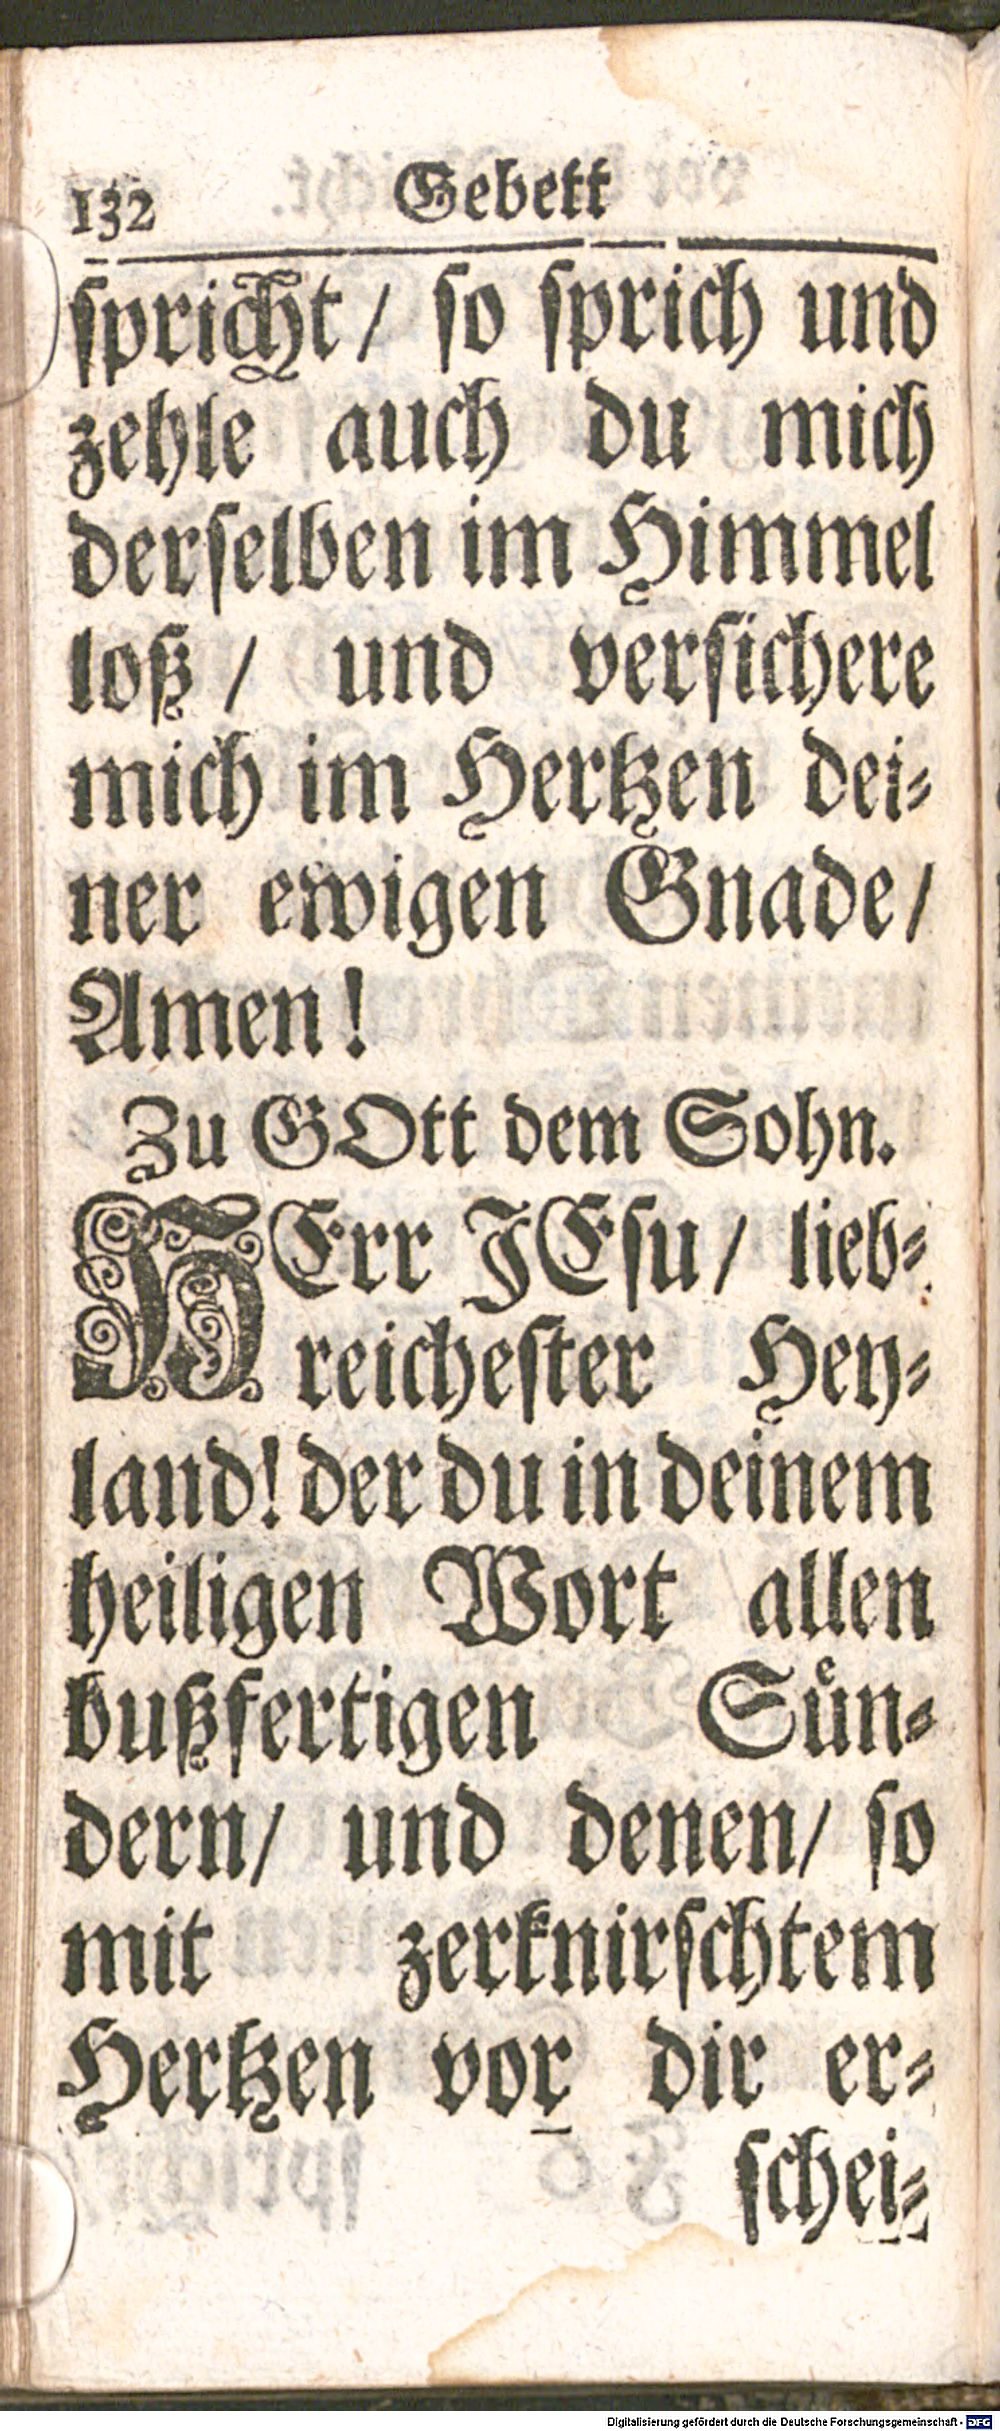 132 Gebett
spricht / so sprich und
zehle auch du mich
derselben im Himmel
loß / und versichere
mich im Hertzen dei-
ner ewigen Gnade /
Amen!
Zu GOtt dem Sohn.
HErr JEsu / lieb-
reichester Hey-
land! der du in deinem
heiligen Wort allen
bußfertigen Sün-
dern / und denen / so
mit zerknirschtem
Hertzen vor dir er-
schei-
Digitalisierung gefördert durch die Deutsche Forschungsgemeinschaft - DFG